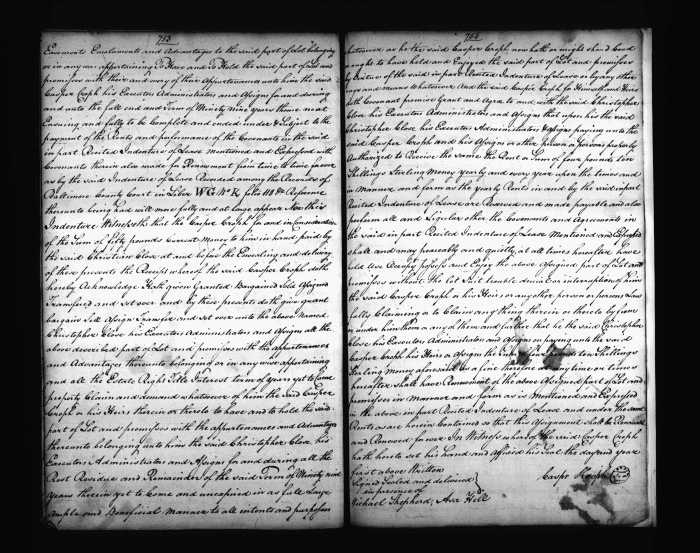 753
Easements Emoluments and Advantages to the said part of Lot belonging
or in any wise appertaining To Have and To Hold the said part of Lot and
premises with their and every of their Appurtenances unto him the said
Casper Croph his Executors Administrators and Assigns for and during
and unto the full end and Term of Ninety Nine years then next
Ensuing and fully to be Complete and ended under & Subject to the
payment of the Rents and performance of the Covenants in the said
in part Recited Indenture of Lease Mentioned and Expressed with
Covenants therein also made for Renewment from time to time forever
as by the said Indenture of Lease Recorded among the Records of
Baltimore County Court in Liber WG No K folio 118 Reference
thereunto being had will more fully and at large appear Now this
Indenture Witnesseth that the Casper Croph for and in consideration
of the Sum of fifty pounds Current Money to him in hand paid by
the said Christian Close at and before the Ensealing and delivery
of these presents the Receipt whereof the said Casper Croph doth
hereby Acknowledge Hath given Granted Bargained Sold Assigned
Transfered and Set over and by these presents doth give grant
bargain Sell Assign Transfer and Set over unto the above Named
Christopher Close his Executors Administrators and Assigns all the
above described part of Lot and premises with the appurtenances
and Advantages thereunto belonging or in any wise appertaining
and all the Estate Right Title Interest term of years yet to Come
property Claim and demand whatsoever of him the said Casper
Croph or his Heirs therein or thereto to have and to hold the said
part of Lot and premises with the appurtenances and Advantages
thereunto belonging unto him the said Christopher Close his
Executors Administrators and Assigns for and during all the
Rest Residue and Remainder of the said Term of Ninety nine
Years therein yet to Come and unexpired in as full Large
Ample and Beneficial Manner to all intents and purposes
754
whatsoever as he the said Casper Croph now hath or might should Could
ought to have held and Enjoyed the said part of Lot and premises
by Virtue of the said in part Recited Indenture of Lease or by any other
ways and means whatsoever And the said Casper Croph for Himself and Heirs
doth Covenant promise Grant and Agree to and with the said Christopher
Close his Executors Administrators and Assigns that upon his the said
Christopher Close his Executors Administrators & Assigns paying unto the
said Casper Croph and his Assigns or other person or persons properly
Authorized to Receive the same the Rent or Sum of four pounds ten
Shillings Sterling Money yearly and every year upon the times and
in Manner and form as the yearly Rents in and by the said in part
Recited Indenture of Lease are Reserved and made payable and also
perform all and Singular other the Covenants and Agreements in
the said in part Recited Indenture of Lease Mentioned and Expressed
shall and may peaceably and quietly at all times hereafter have
hold use Occupy possess and Enjoy the above Assigned part of Lot and
premises without the Let Suit trouble denial or interruption of him
the said Casper Croph or his Heirs or any other person or persons Law
fully Claiming or to Claim any thing therein or thereto by from
or under him them or any of them and further that he the said Christopher
Close his Executors Administrators and Assigns paying unto the said
Casper Croph his Heirs or Assigns the four pounds ten Shillings
Sterling Money aforesaid as a fine therein at any time or times
hereafter shall have Renewment of the above Assigned part of Lot and
premises in Manner and form as is Mentioned and Expressed
in the above in part Recited Indenture of Lease and under the same
Rents as are herein Contained so that this Assignment shall be Renewable
and Renewed forever In Witness whereof the said Casper Croph
hath hereto set his hand and affixed his Seal the day and year
first above Written
Signed Sealed and delivered
in presence of
Michael Shepherd, Asa Hill
Casper